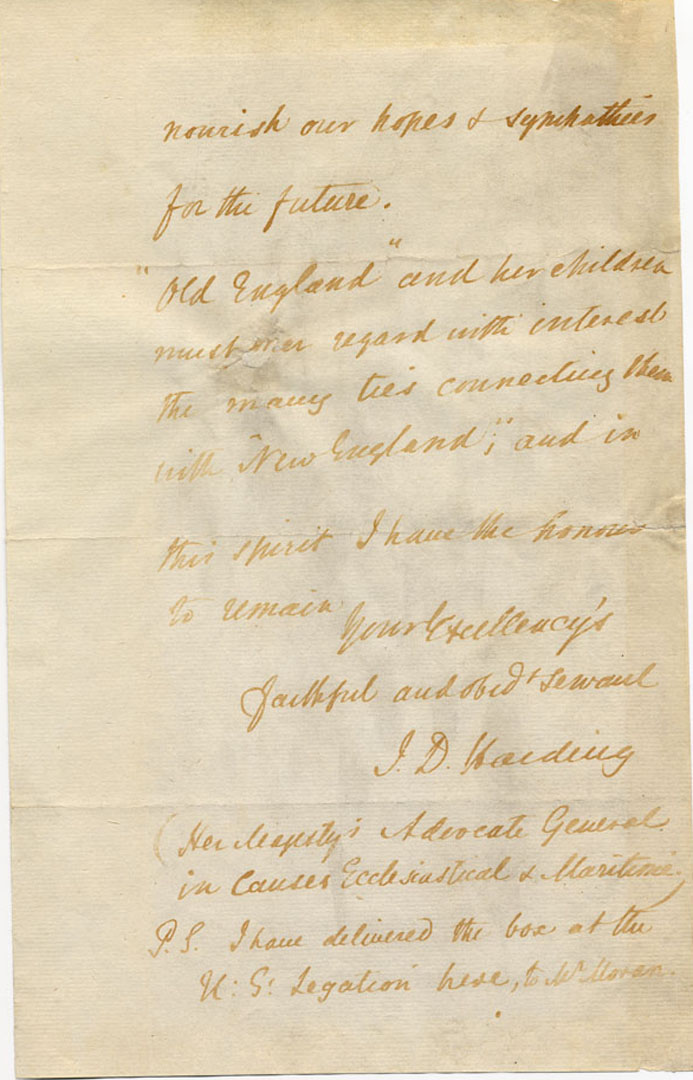 nourish our hopes & sympathies
for the future.
"Old England" and her children
must ever regard with interest
the many ties connecting them
with "New England"; and in
this spirit I have the honour
to remain
Your Excellency's
faithful and obed.t servant
J. D. Harding
(Her Majesty's Advocate General
in Causes Ecclesiastical & Maritime.)
P.S. I have delivered the box at the
U: S: Legation here, to Mr Moran.